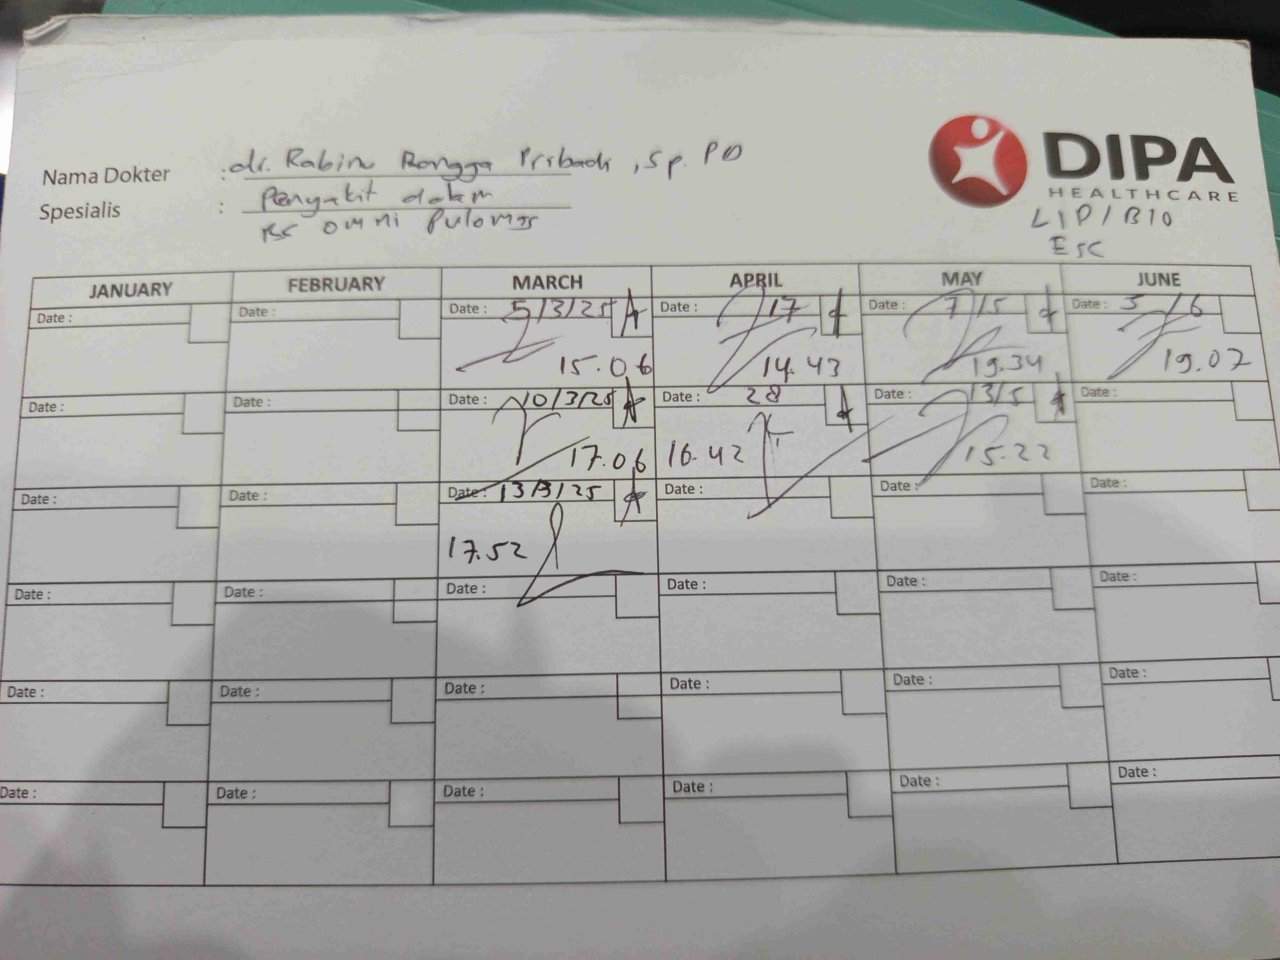 DIPA
HEALTHCARE
LIP/BIO
ESC
Nama Dokter : dr. Rabin Rangga Pribadi, Sp. PD
Spesialis : Penyakit dalam
RS omni Pulomas
JANUARY FEBRUARY MARCH APRIL MAY JUNE
Date : Date : Date : 5/3/25 A Date : 17 Date : 7/5 Date : 3/6
15.06 14.43 19.34 19.07
Date : Date : Date : 10/3/25 A Date : 28 Date : 13/5 Date :
17.06 16.42 15.22
Date : Date : Date : 13/3/25 A Date : Date : Date :
17.52
Date : Date : Date : Date : Date : Date :
Date : Date : Date : Date : Date : Date :
Date : Date : Date : Date : Date : Date :